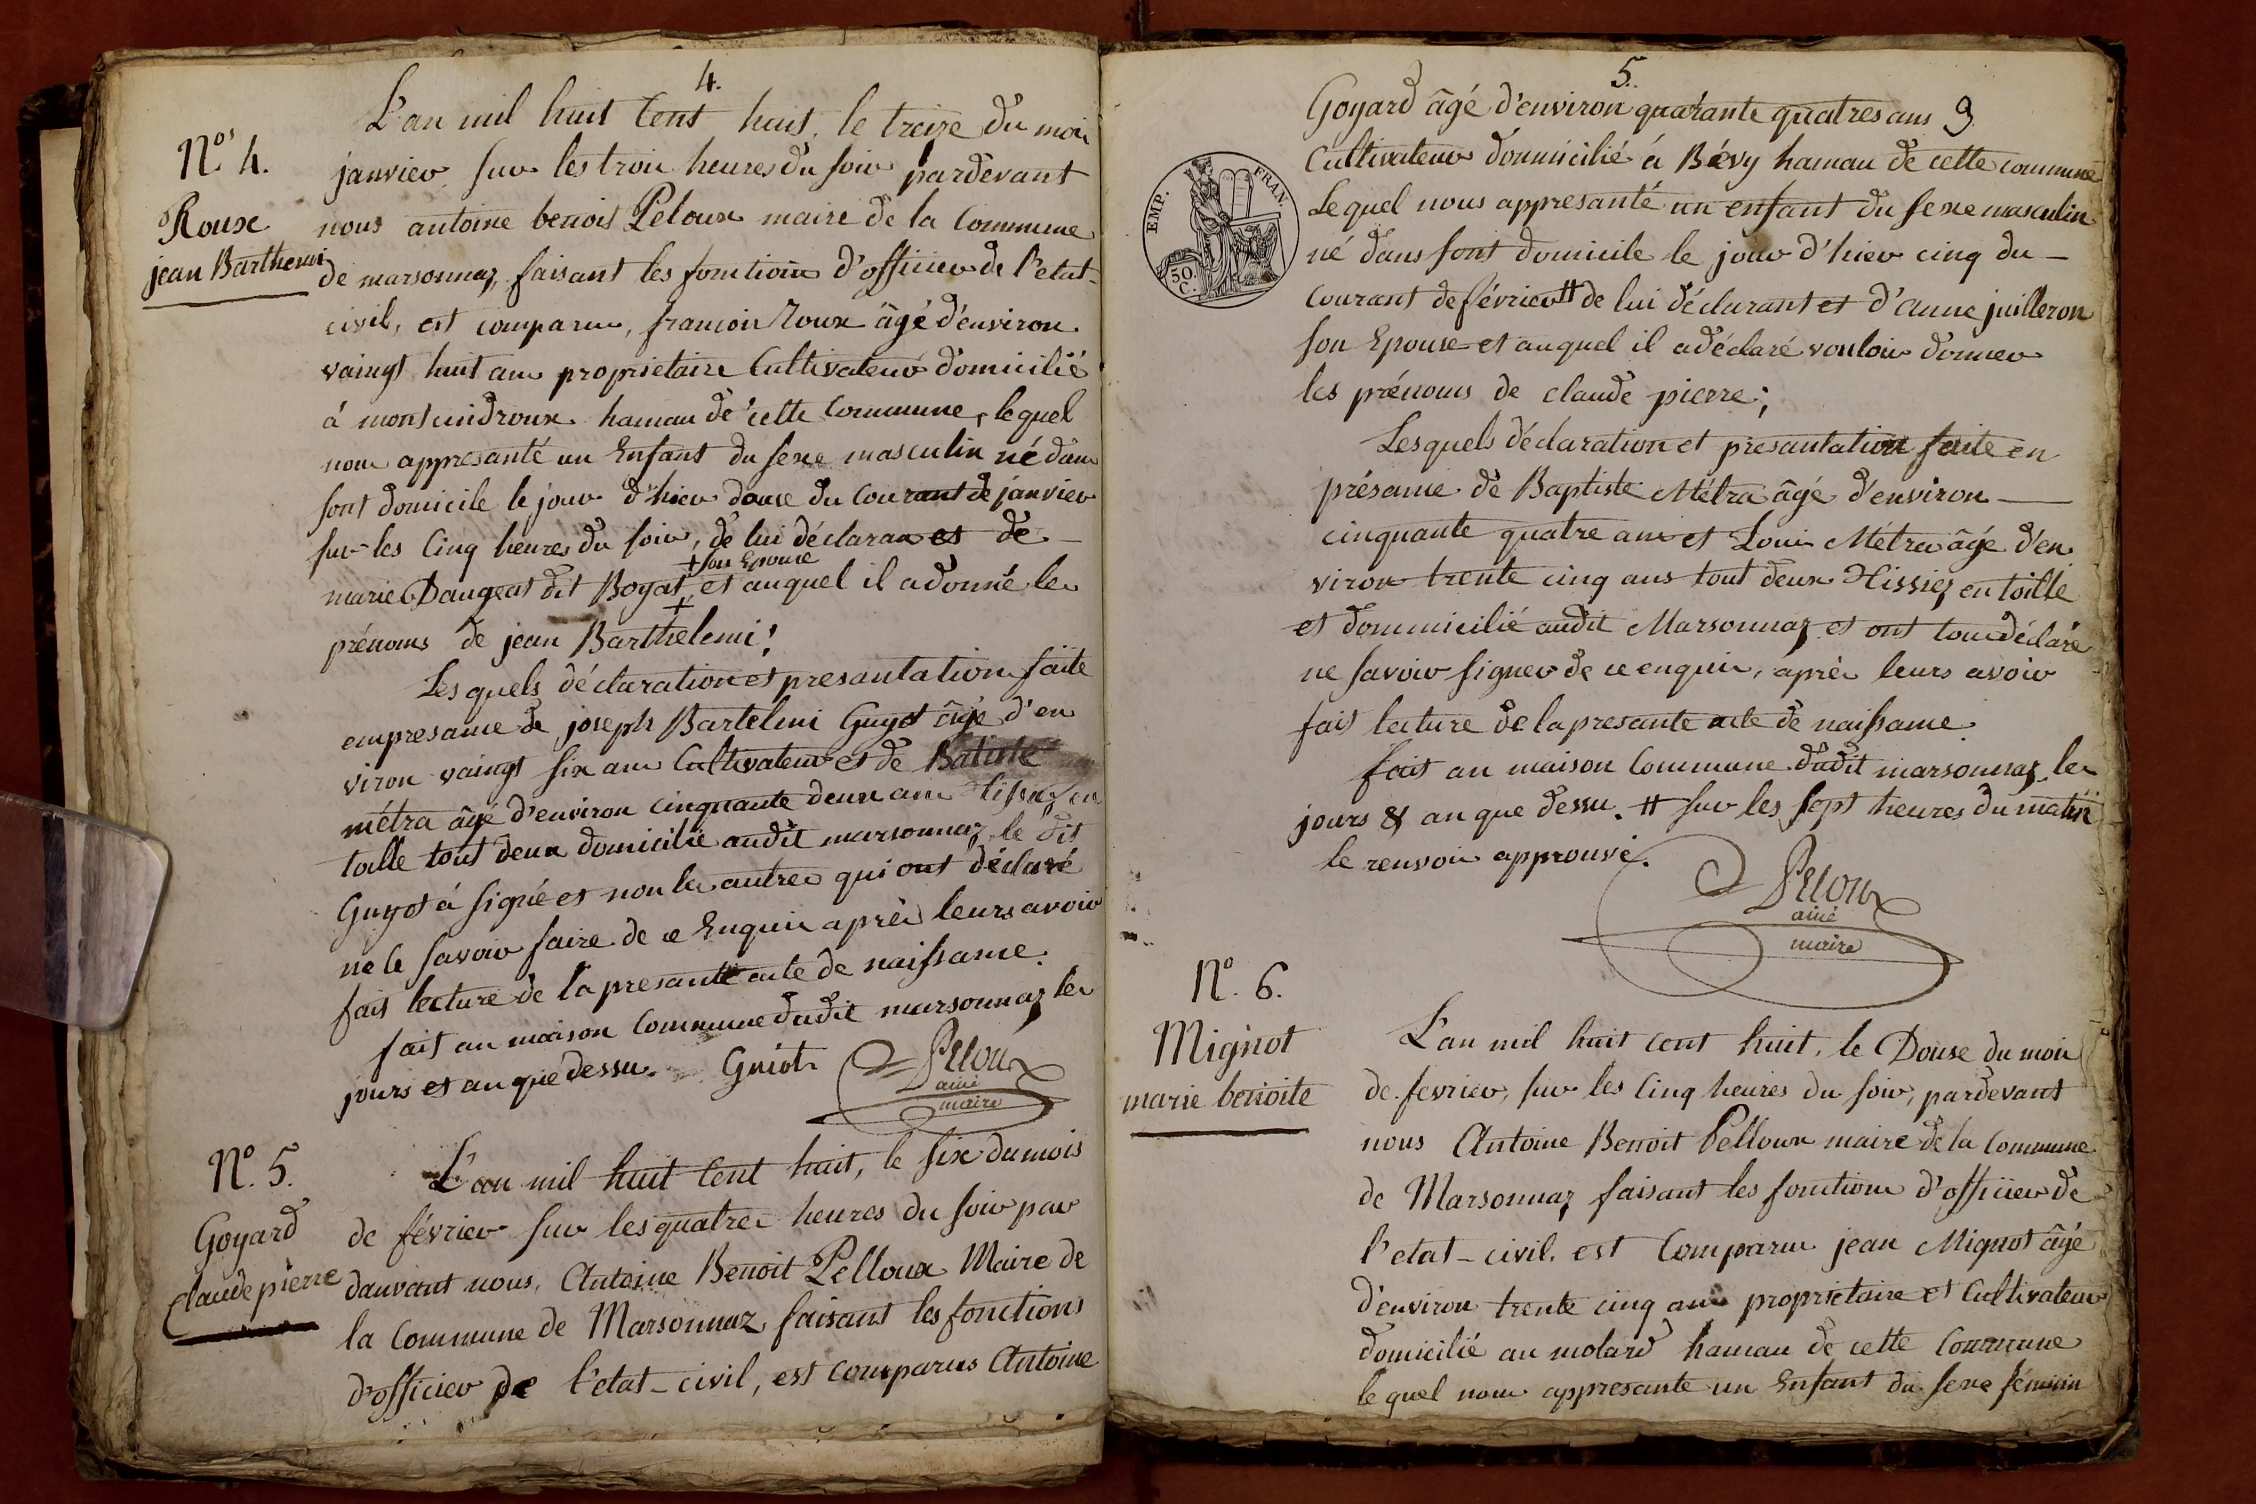 4.
N.° 4.
Roux
jean Barthemi
L'an mil huit Cent huit, le treize du moi
janvier sur les trois heures du soir pardevant
nous antoine benois Peloux maire de la Commune
de marsonnaz, faisant les fonction d'officier de l'etat-
civil, est comparu, francoi Roux âgé d'environ
vaingt huit ans proprietaire Cultivateur domicilié
à montcindroux hamau de cette Commune, lequel
nous appresanté un Enfant du sexe masculin né dans
sont domicile le jour d'hier douse du Courant de janvier
sur les Cinq heures du soir, de lui déclaran et de
+ son Epouse
marie Daugeat dit Boyat, et auquel il a donné les
prénoms de jean Barthelemi;
Lesquels déclaration et presantation faite
enpresance de joseph Bartelmi Guyot âgé d'en
viron vaingt six ans Cultivateur et de Batiste
métra âgé d'environ cinquante deux ans tissier en
toille tout deux domicilié audit marsonnaz le dit
Guyot à signé et non les autres qui ont déclaré
ne le savoir faire de ce Enquis après leurs avoir
fait lecture de la presante acte de naissance.
fait an maison Commune dudit marsonnaz les
jours et an que dessu. Guiot Peloux
ainé
maire
N.° 5.
Goyard
Claude pierre
L'an mil huit Cent huit, le six du mois
de février sur les quatre heures du soir par
dauvant nous, Antoine Benoit Pelloux Maire de
la Commune de Marsonnaz, faisant les fonctions
d'officier de l'etat-civil, est comparus Antoine
5.
9
Goyard âgé d'environ quarante quatres ans
Cultivateur domicilié à Bévy hamau de cette commune
Lequel nous appresanté un enfant du sexe masculin
né dans sont domicile le jour d'hier cinq du
Courant de février # de lui déclarant et d'Anne juilleron
son Epouse et auquel il a déclaré vouloir donner
les prénoms de claude pierre;
EMP. FRAN.
50 C.
Lesquels déclaration et presantation faite en
présance de Baptiste Métra âgé d'environ
cinquante quatre ans et Louis Métra âgé d'en
viron trente cinq ans tout deux Tissiez en toille
et dommicilié audit Marsonnaz et ont tous déclaré
ne savoir signer de ce enquis, après leurs avoir
fait lecture de la presante acte de naissance.
fait an maison Commune dudit marsonnaz les
jours & an que dessu. # sur les sept heures du matin
le renvoi approuvé.
Peloux
ainé
maire
N.° 6.
Mignot
marie benoite
L'an mil huit cent huit, le Douse du mois
de fevrier, sur les Cinq heures du soir, pardevant
nous Antoine Benoit Pelloux maire de la Commune
de Marsonnaz faisant les fonctions d'officier de
l'etat-civil, est Comparu jean Mignot âgé
d'environ trente cinq ans proprietaire et Cultivateur
domicilié au molard hamau de cette Commune
lequel nous appresante un Enfant du sexe féminin